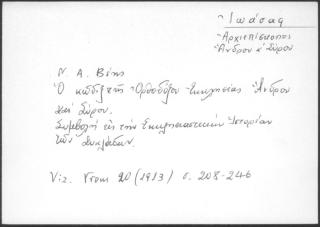 Ἰωάσαφ
Ἀρχιεπίσκοπος
Ἄνδρου κ' Σύρου
Ν. Α. Βέης
Ὁ κῶδιξ τῆς Ὀρθοδόξου Ἐκκλησίας Ἄνδρου
καὶ Σύρου.
Συμβολὴ εἰς τὴν Ἐκκλησιαστικὴν Ἱστορίαν
τῶν Κυκλάδων.
Viz. Vrem 20 (1913) σ. 208-246